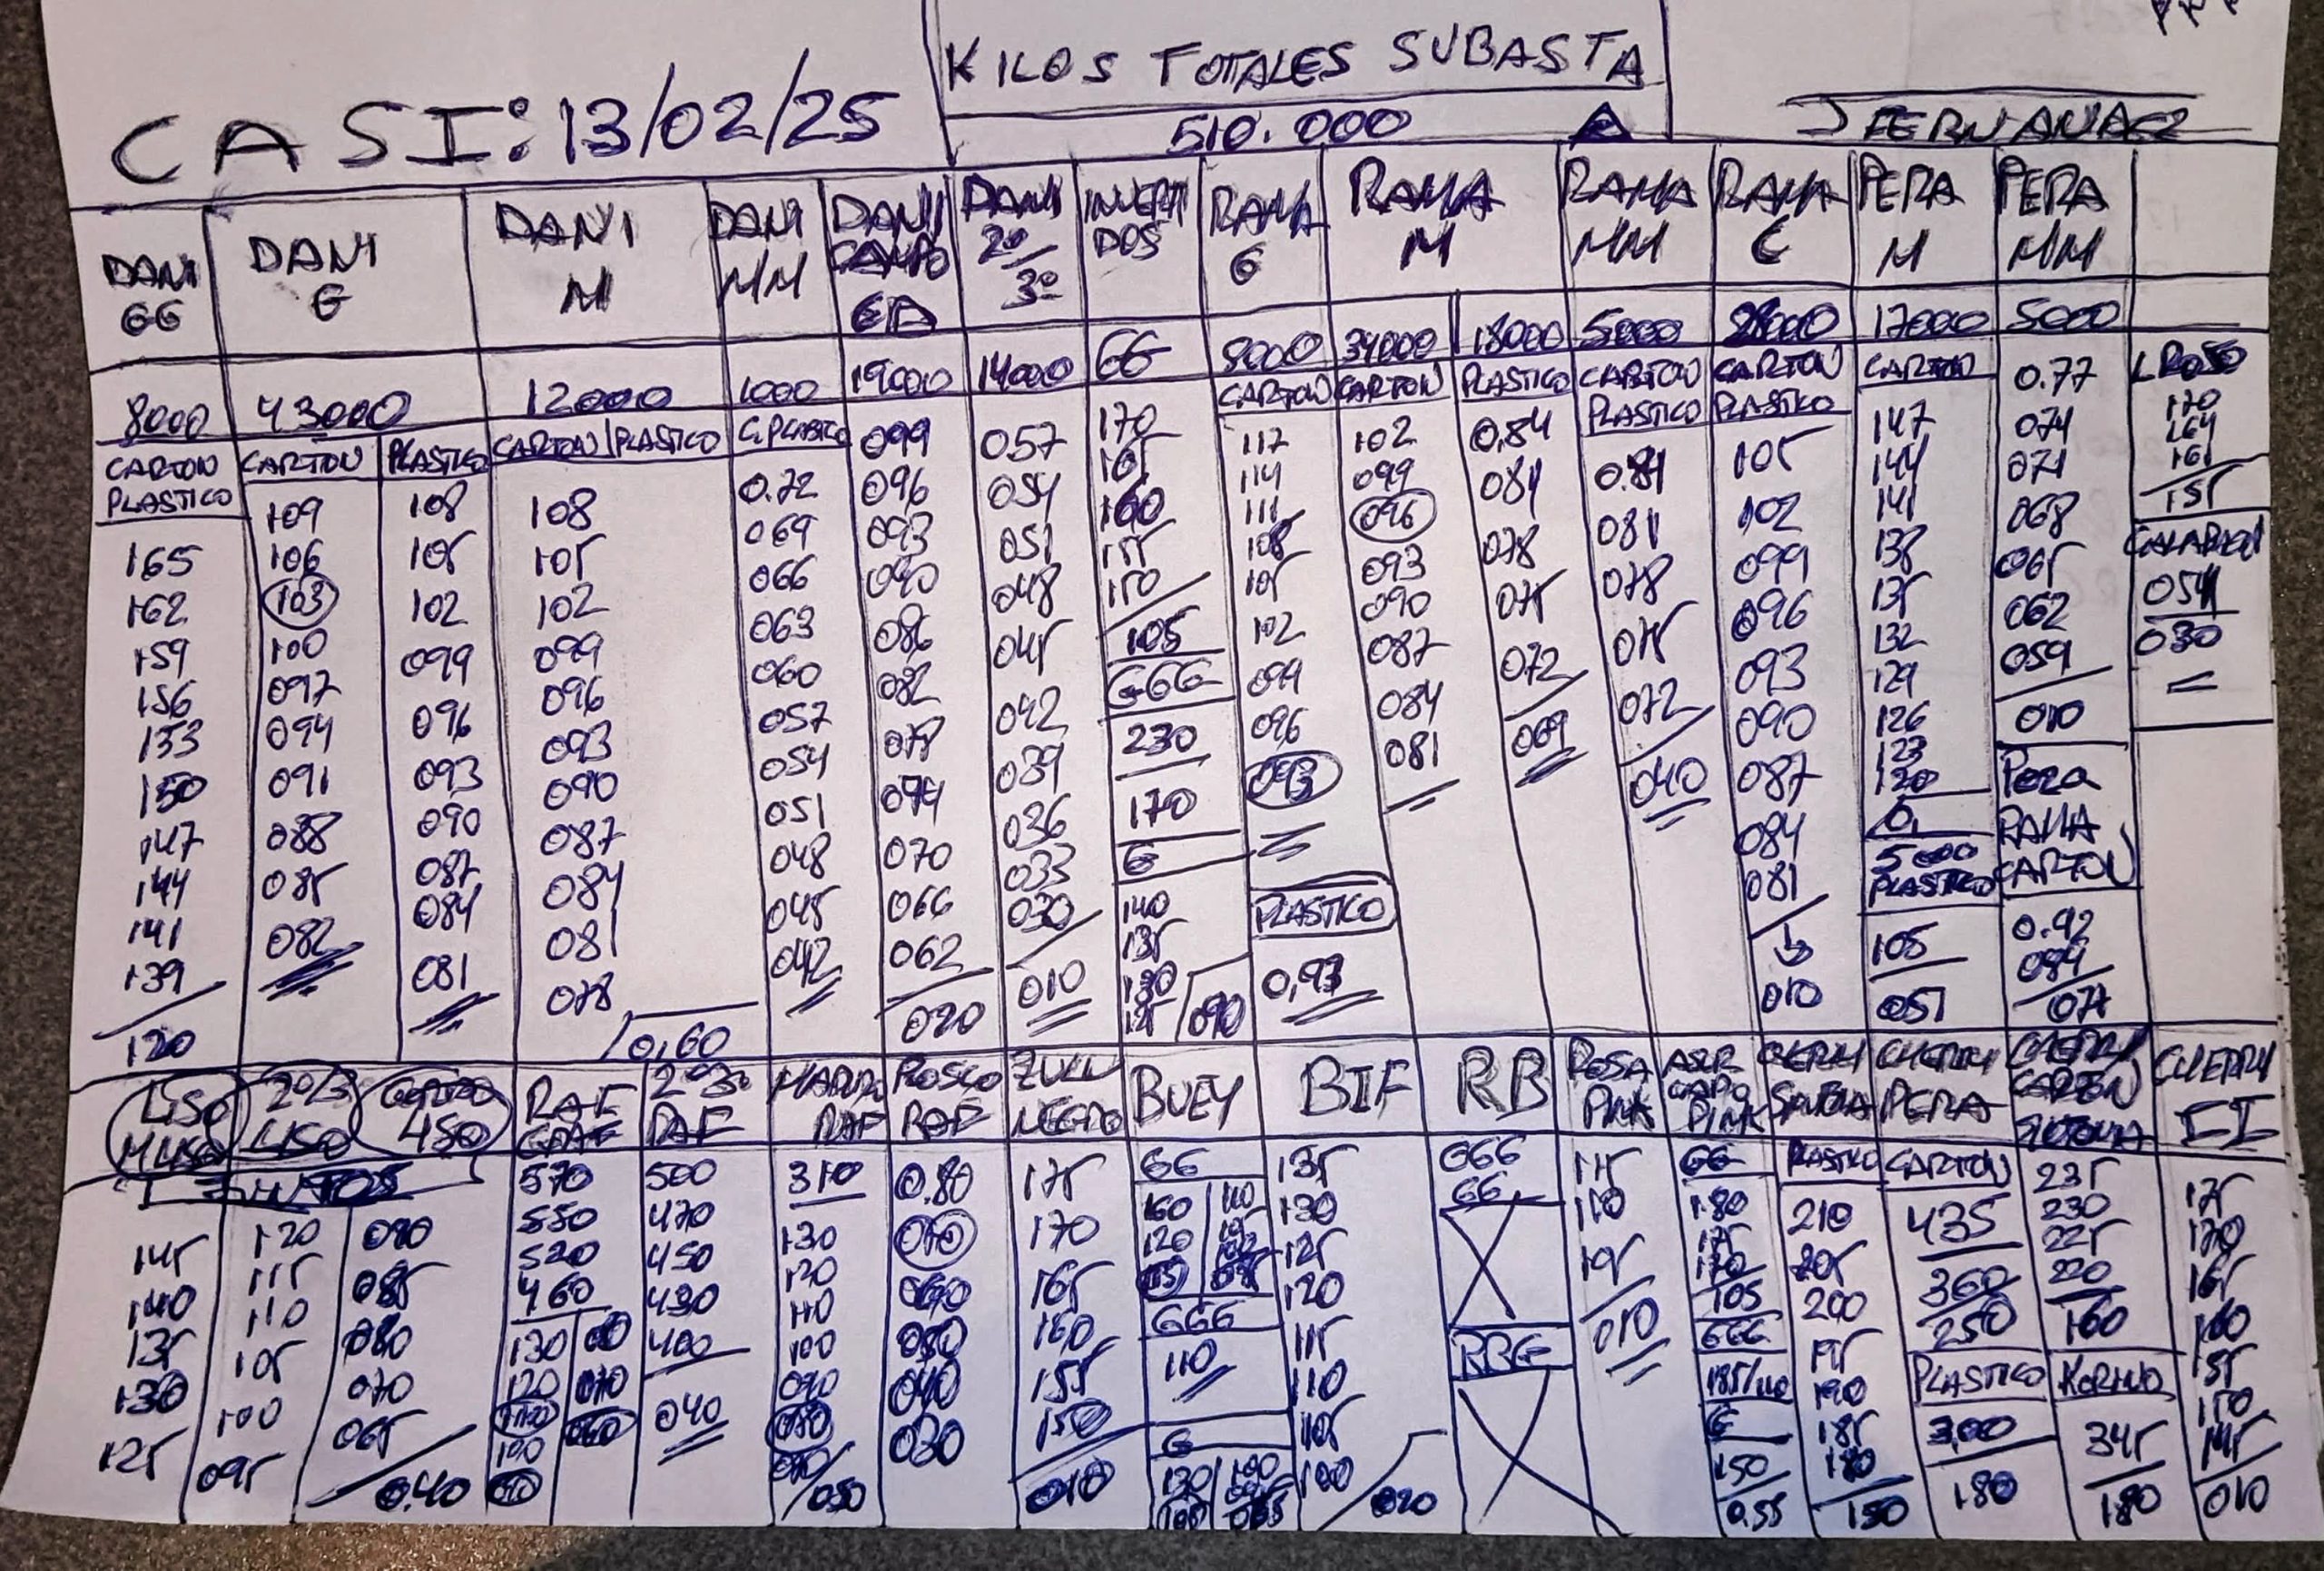 KILOS TOTALES SUBASTA
CASI: 13/02/25
510.000
J FERNANDEZ
DANI GG
DANI G
DANI M
DANI MM
DANI CAMPO
DANI 2º/3º
INVERTI DOS
RAMA G
RAMA M
RAMA MM
RAMA C
PERA M
PERA MM
8000
43000
12000
1000
19000
14000
GG
8000
34000
18000
5000
28000
17000
5000
CARTON PLASTICO
165
162
159
156
153
150
147
144
141
139
120
CARTON
109
106
103
100
097
094
091
088
085
082
PLASTICO
108
105
102
099
096
093
090
087
084
081
CARTON | PLASTICO
108
105
102
099
096
093
090
087
084
081
078
0,60
C. PLASTICO
0.72
069
066
063
060
057
054
051
048
045
042
099
096
093
090
086
082
078
074
070
066
062
020
057
054
051
048
045
042
039
036
033
030
010
170
165
160
155
150
105
GGG
230
170
G
140
135
130
125
090
CARTON
117
114
111
108
105
102
099
096
093
PLASTICO
0,93
CARTON
102
099
096
093
090
087
084
081
PLASTICO
0,84
081
078
075
072
069
CARTON
PLASTICO
0.84
081
078
075
072
040
CARTON
PLASTICO
105
102
099
096
093
090
087
084
081
010
CARTON
147
144
141
138
135
132
129
126
123
120
5000
PLASTICO
105
051
0.77
074
071
068
065
062
059
010
PERA
RAMA
CARTON
0.92
084
077
170
164
161
155
054
030
LISO
2º/3
450
450
JUNTOS
145
140
135
130
125
120
115
110
105
100
095
090
085
080
070
065
0.40
RAF
570
550
520
460
130
120
100
2º3º
RAF
500
470
450
430
400
040
MADURO
RAF
310
130
120
110
100
090
050
ROSCO
RAF
0.80
030
ZULU
NEGRO
175
170
165
160
155
150
010
BUEY
GG
160
120
GGG
110
G
130
BIF
135
130
125
120
115
110
105
100
020
RB
GGG
GG
RBG
ROSA
PINK
115
110
105
010
PINK
GG
180
175
170
105
GGG
185/110
G
150
0.55
CHERRY
PLASTICO
210
205
200
195
190
185
180
150
CHERRY
PERA
CARTON
435
360
250
PLASTICO
3,00
180
CHERRY
CARTON
235
230
225
220
160
345
180
CHERRY
II
175
170
165
160
155
150
145
010